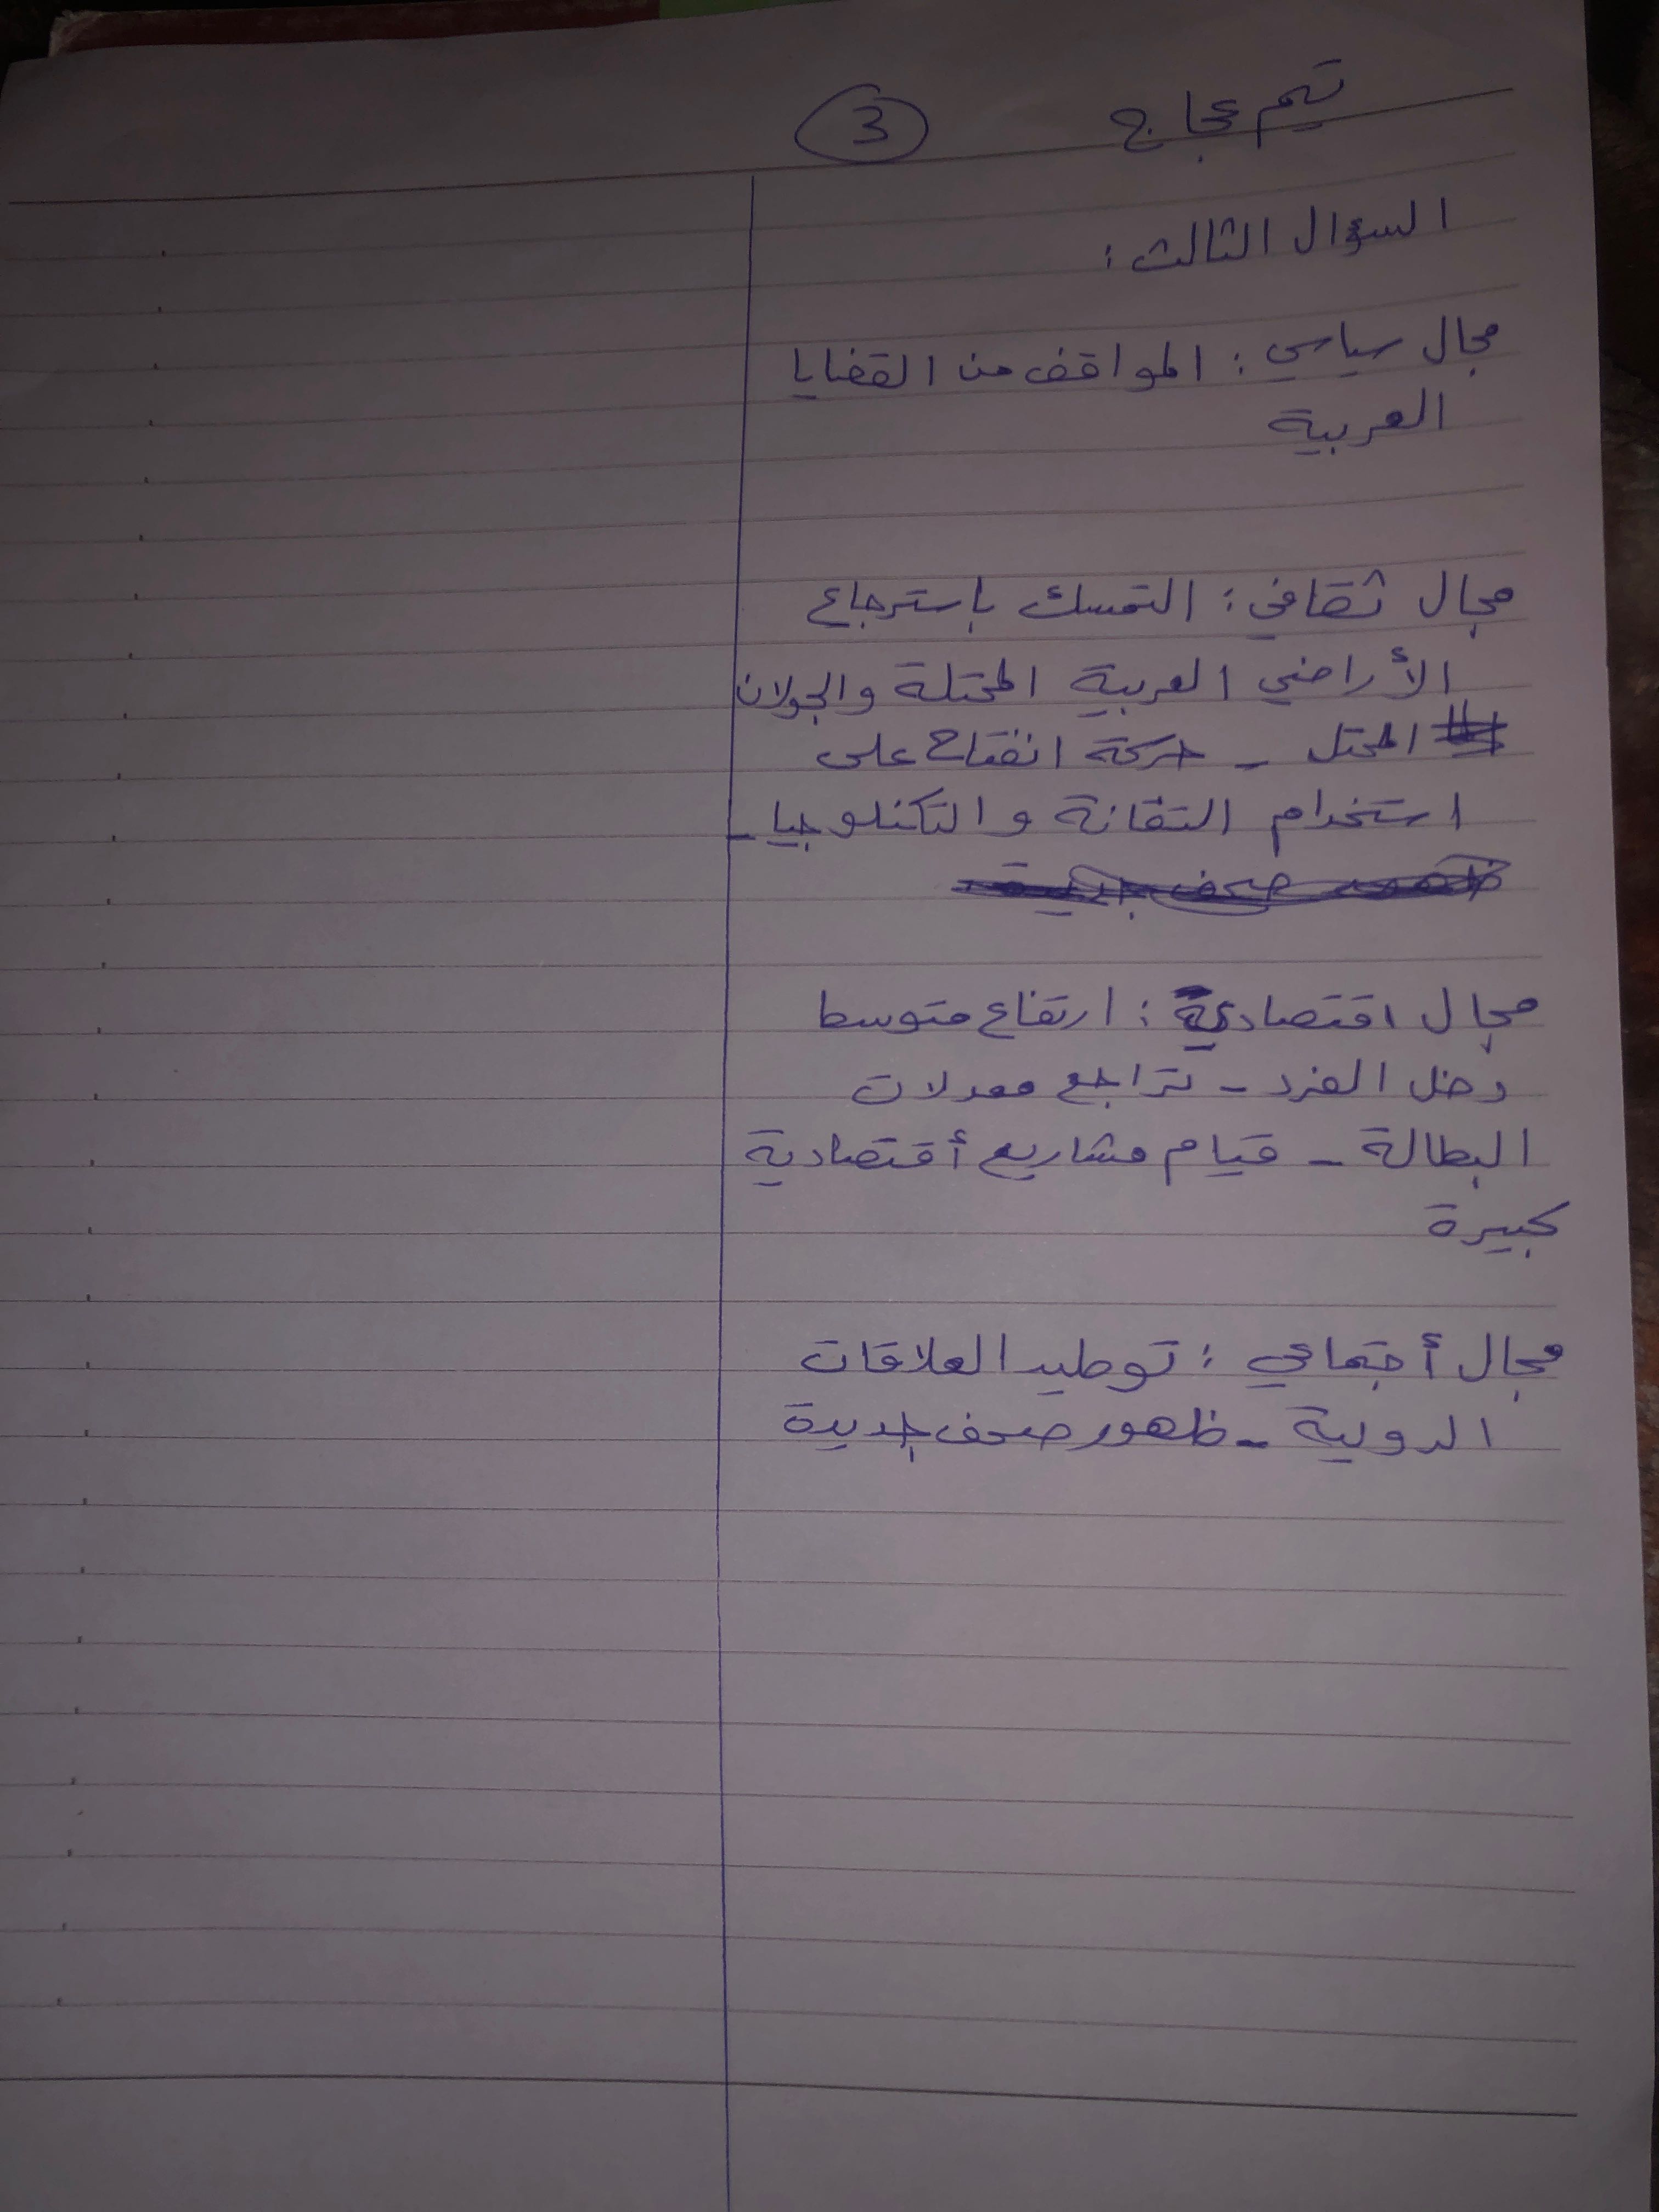 تيم عجاج 3
السؤال الثالث :
مجال سياسي : المواقف من القضايا
العربية
مجال ثقافي : التمسك بإسترجاع
الأراضي العربية المحتلة والجولان
المحتل - حركة انفتاح على
استخدام التقانة و التكنلوجيا -
ظهور صحف جديدة
مجال اقتصادي : ارتفاع متوسط
دخل الفرد - تراجع معدلات
البطالة - قيام مشاريع أقتصادية
كبيرة
مجال أجتماعي : توطيد العلاقات
الدولية - ظهور صحف جديدة